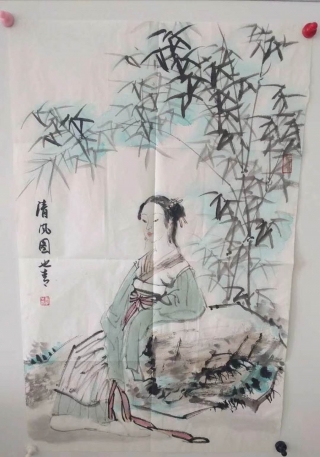 清风图也青